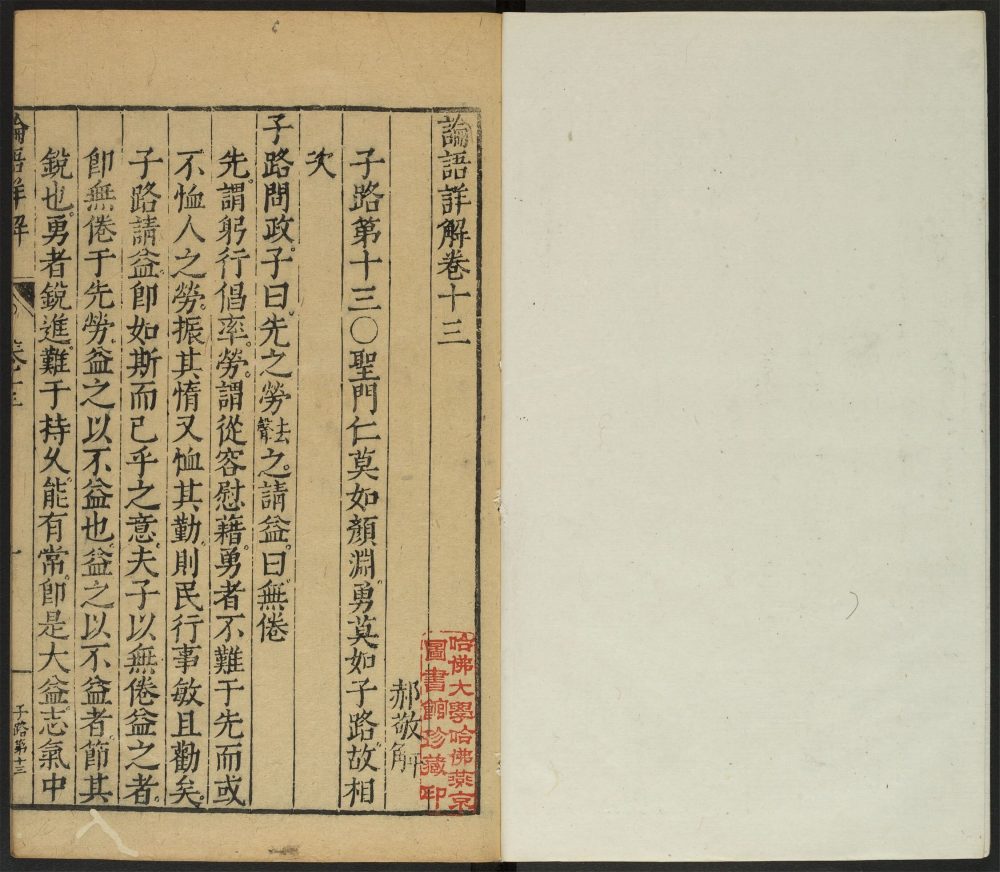 論語詳解卷十三
郝敬解
子路第十三○聖門仁莫如顏淵勇莫如子路故相
次
子路問政子曰先之勞去聲之請益曰無倦
先謂躬行倡率勞謂從容慰藉勇者不難于先而或
不恤人之勞振其惰又恤其勤則民行事敏且勸矣
子路請益卽如斯而已乎之意夫子以無倦益之者
卽無倦于先勞益之以不益也益之以不益者節其
銳也勇者銳進難于持久能有常卽是大益志氣中
論語詳解
卷十三
一
子路第十三
哈佛大學哈佛燕京
圖書館珍藏印